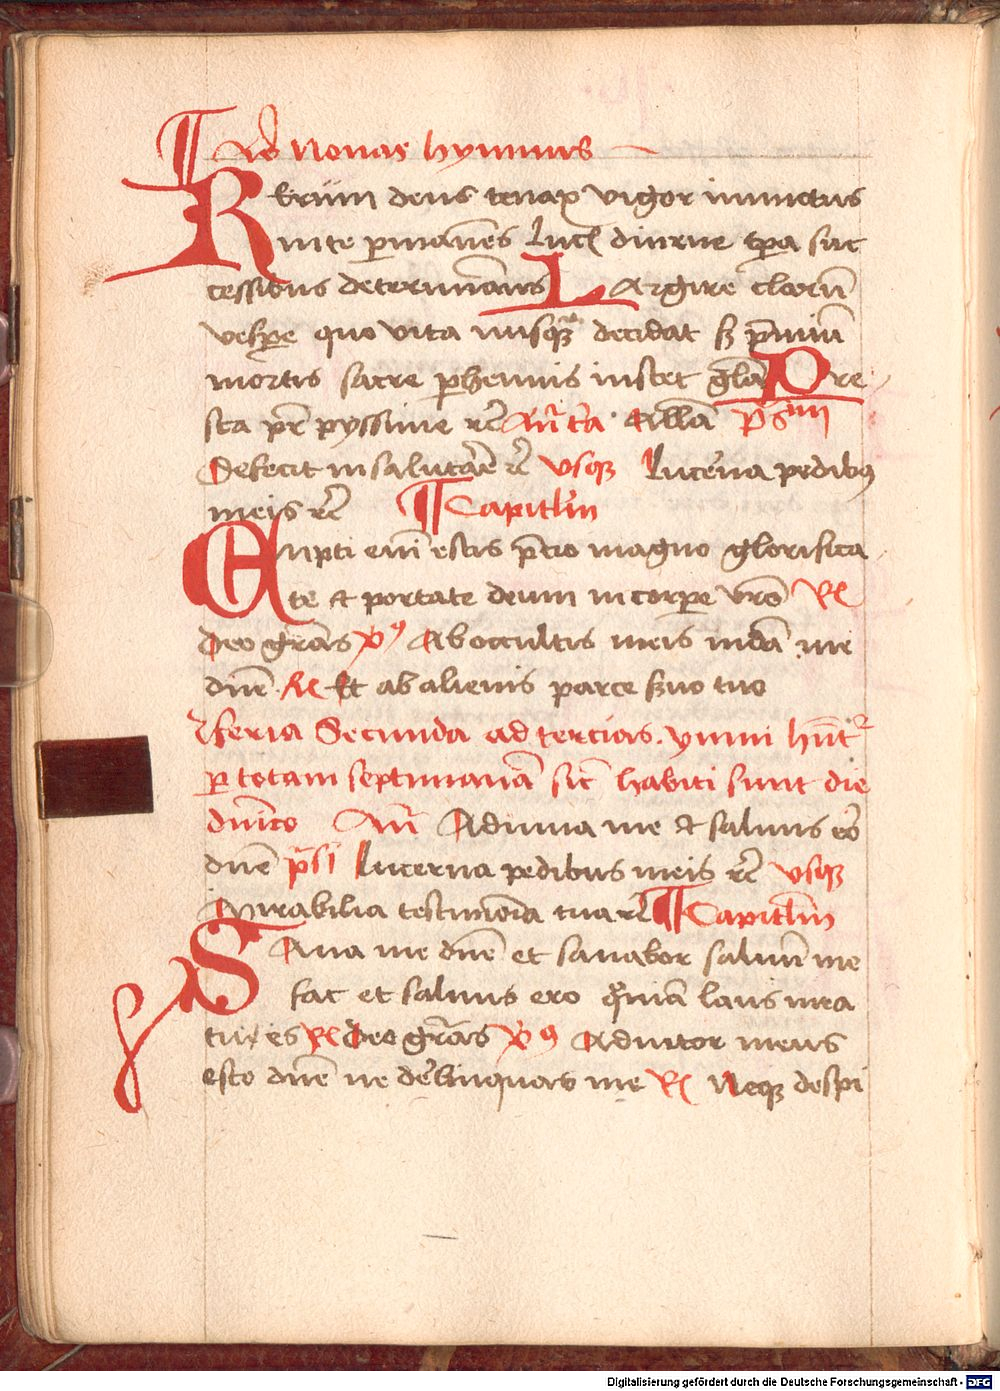 ¶ Ad Nonas hymnus
Rerum deus tenax vigor inmotus
in te p̄manēs Lucſ diurne tp̄a suc
cessibus determinans Largire clarū
vesꝑe quo vita nusqᷓ decidat sʒ p̄miū
mortis sacre ꝑhennis instet glā Pre
sta pr̄ pyssime rc̄ Añ tēa Allā p̄s iiii
Defecit in salutāre rc̄ vsqꝫ Lucerna pedibꝰ
meis rc̄ ¶ Capitlm̄
Empti em̄ estis p̄cio magno glorifica
te et portate deum in corꝑe vr̄o ℟
Deo grās ꝟꝰ Ab occultis meis mūdā me
dn̄e ℟ Et ab alienis parce ſuo tuo
Feria Secunda ad tercias. ymni hn̄tᷣ
ꝑ totam septimanā sic̄ habiti sunt die
dn̄ico Añ Adiuua me et saluus eō
dn̄e p̄s i Lucerna pedibus meis rc̄ vsqꝫ
Mirabilia testimōia tua rc̄ ¶ Capitlm̄
Sana me dn̄e et sanabor saluū me
fac et saluus ero qm̄iā laus mea
tu es ℟ Deo grās ꝟꝰ Adiutor meus
esto dn̄e ne derelinquas me ℟ Neqꝫ despi
Digitalisierung gefördert durch die Deutsche Forschungsgemeinschaft - DFG